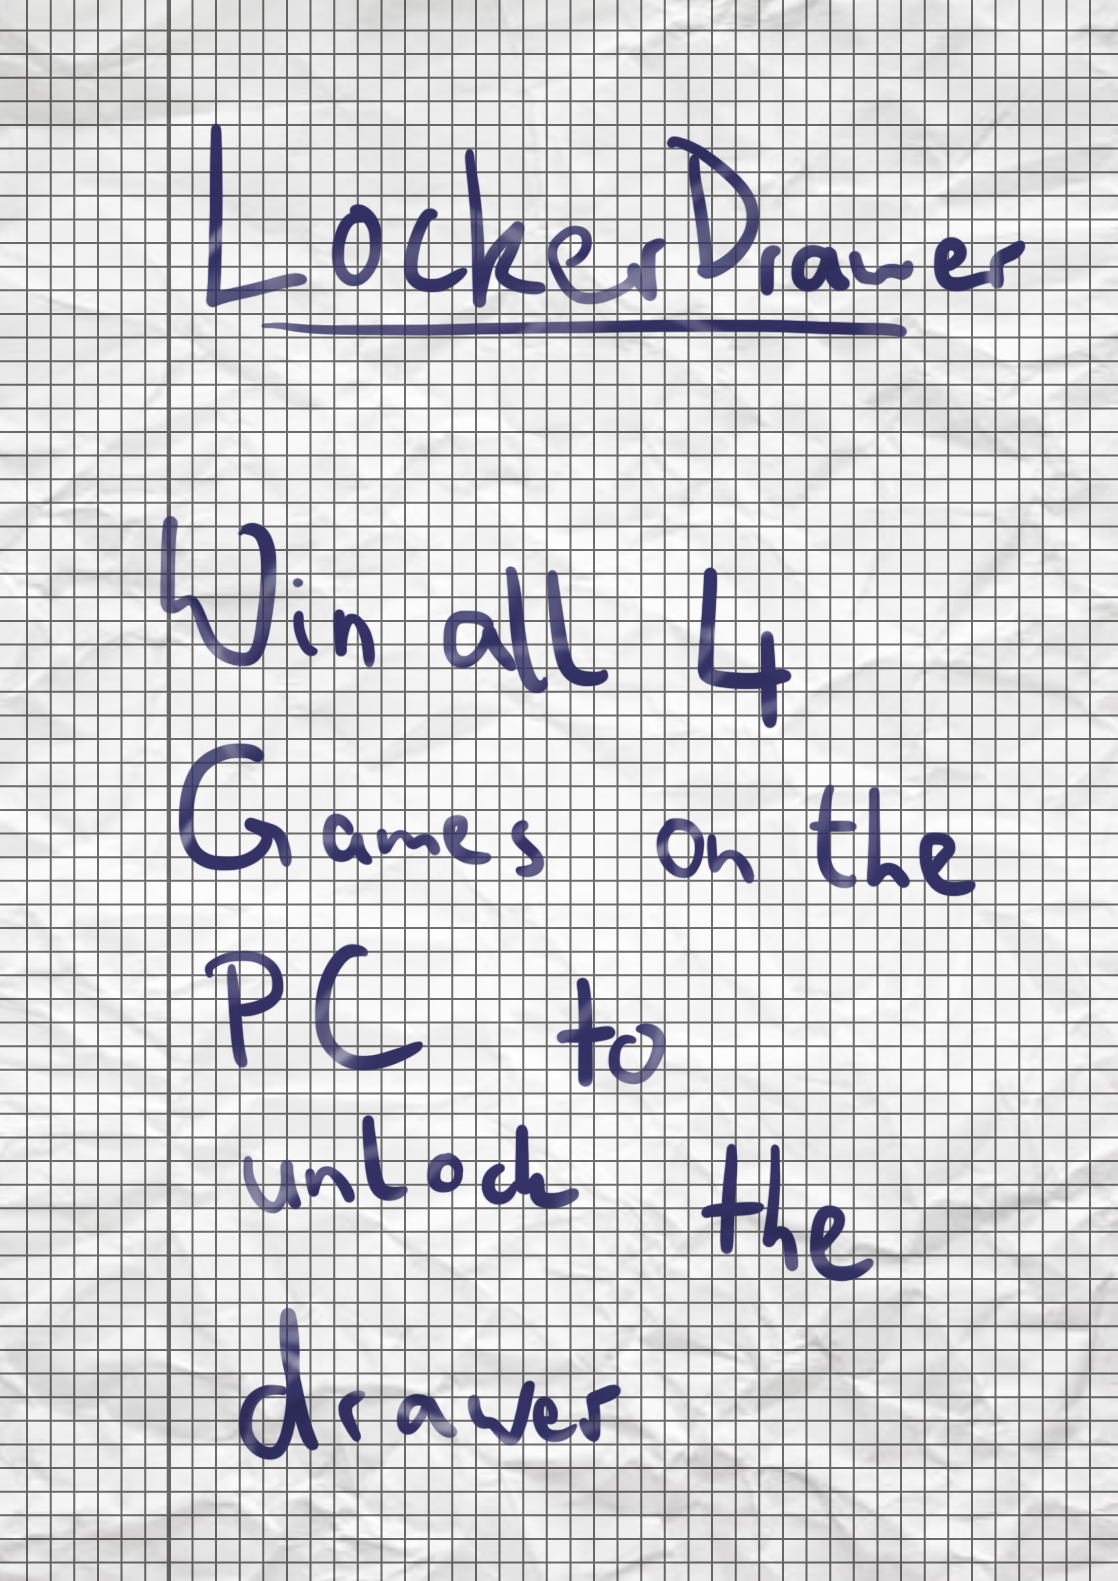 LockerDrawer
Win all 4
Games on the
PC to
unlock the
drawer